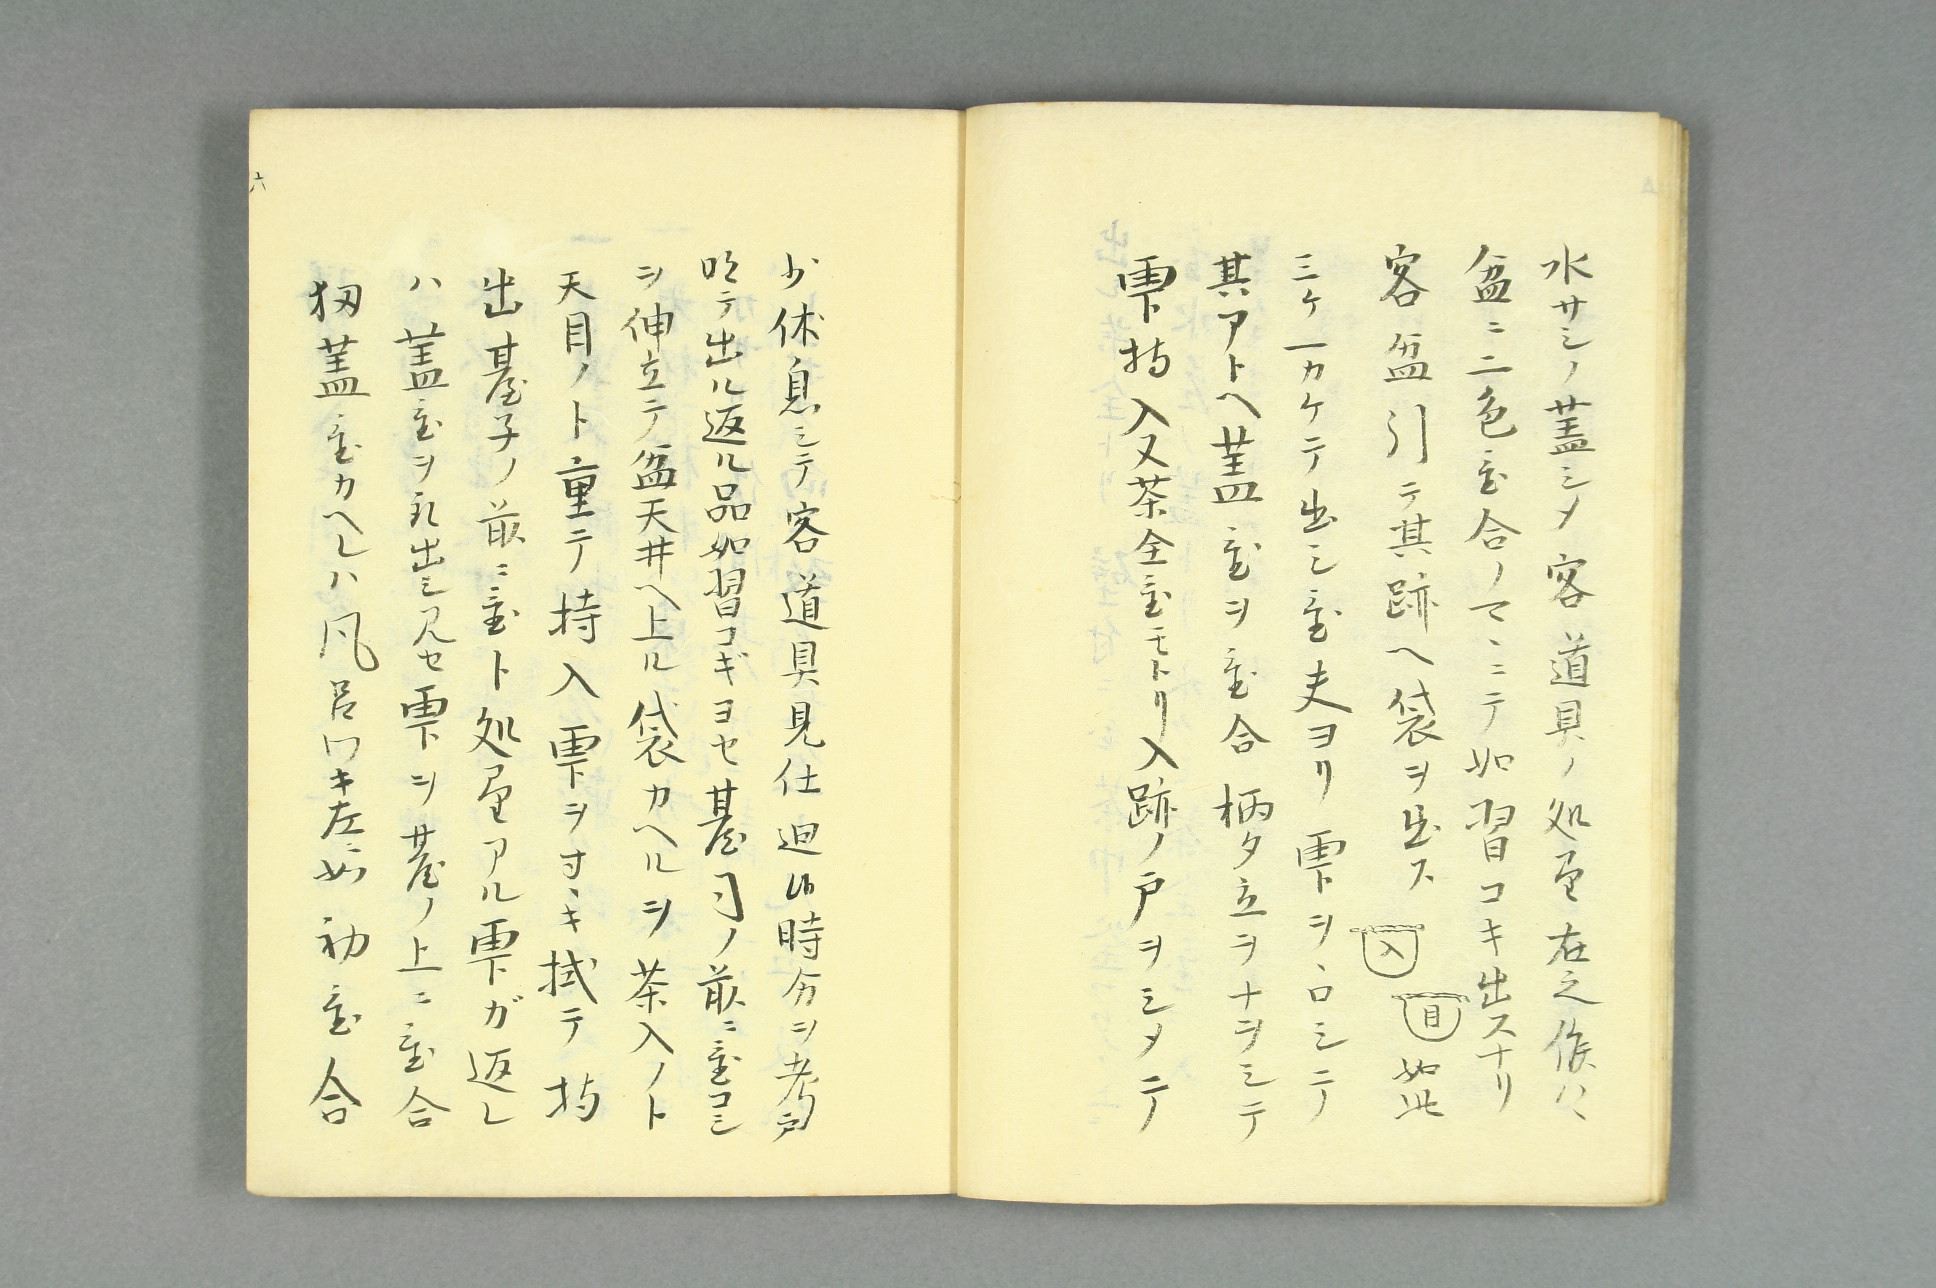 水サシノ蓋シメ客道具ノ処望在之候ハヽ
盆ニ二色置合ノマヽニテ如習コキ出スナリ
客盆引テ其跡ヘ袋ヲ出ス
入
目
如此
三ケ一カケテ出シ置夫ヨリ雫ヲヽロシテ
其アトヘ蓋置ヲ置合柄夕立ヲナヲシテ
雫持入又茶全置モトリ入跡ノ戸ヲシメテ
少休息シテ客道具見仕廻候時分ヲ考戸
明テ出ル返ル品如習コギヨセ臺司ノ前ニ置コシ
ヲ伸立テ盆天井ヘ上ル袋カヘルヲ茶入ノト
天目ノト重テ持入雫ヲオヽキ拭テ持
出臺子ノ前ニ置ト処望アル雫ガ返レ
ハ蓋置ヲ取出シ見セ雫ヲ臺ノ上ニ置合
扨蓋置カヘレハ風呂ワキ左ニ如初置合
六